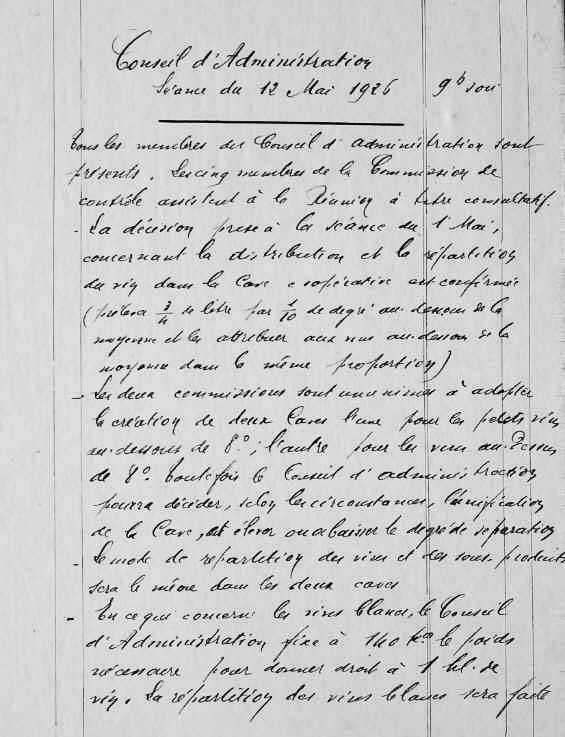 Conseil d'Administration
Séance du 12 Mai 1926 9h soir
Tous les membres du Conseil d'administration sont
présents. Les cinq membres de la Commission de
contrôle assistent à la Réunion à titre consultatif.
- La décision prise à la séance du 1 Mai,
concernant la distribution et la répartition
du vin dans la Cave coopérative est confirmée
( 3/4 de litre par 1/10 de degré au-dessous de la
moyenne et les attribuer aux vins au-dessus de la
moyenne dans la même proportion)
- Les deux commissions sont unanimes à adopter
la création de deux Caves l'une pour les petits vins
au-dessous de 8°; l'autre pour les vins au-dessus
de 8°. Toutefois le Conseil d'administration
pourra décider, selon les circonstances, l'unification
de la Cave, et élever ou abaisser le degré de séparation
- Le mode de répartition des vins et des sous-produits
sera le même dans les deux caves
- En ce qui concerne les vins blancs, le Conseil
d'Administration fixe à 140 kgs le poids
nécessaire pour donner droit à 1 hl. de
vin. La répartition des vins blancs sera faite